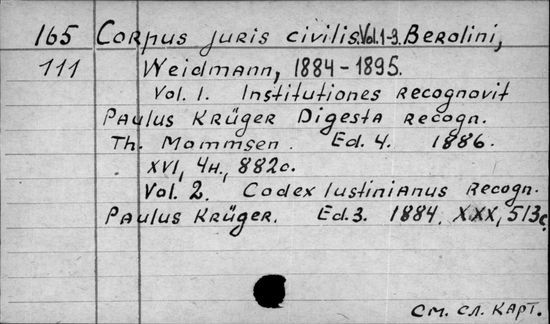 165 Corpus juris civilis. Vol. 1-3. Berolini,
111 Weidmann, 1884-1895.
Vol. 1. Institutiones recognovit
Paulus Krüger Digesta recogn.
Th. Mommsen. Ed. 4. 1886.
XVI, 4н., 882с.
Vol. 2. Codex Iustinianus recogn.
Paulus Krüger. Ed. 3. 1884. XXX, 513с.
см. сл. карт.